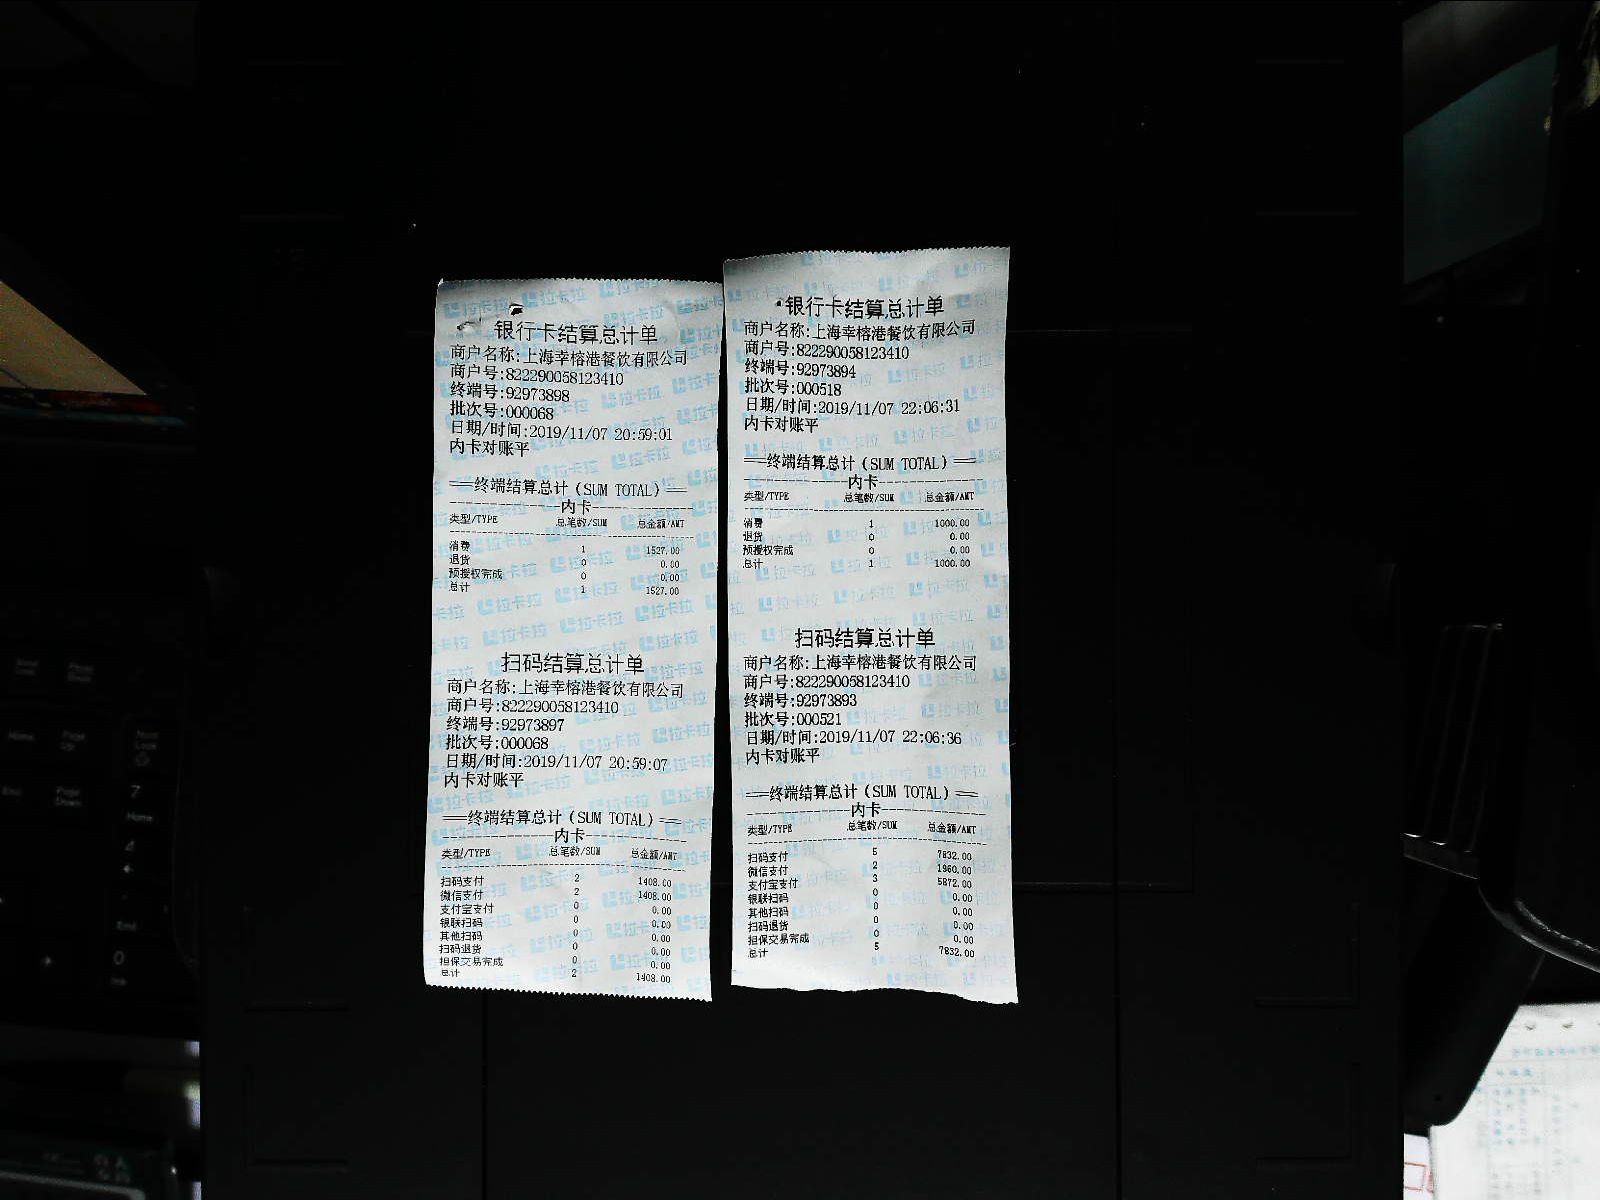 银行卡结算总计单
商户名称:上海幸榕港餐饮有限公司
商户号:822290058123410
终端号:92973898
批次号:000068
日期/时间:2019/11/07 20:59:01
内卡对账平
==终端结算总计(SUM TOTAL)==
内卡
类型/TYPE 总笔数/SUM 总金额/AMT
消费 1 1527.00
退货 0 0.00
预授权完成 0 0.00
总计 1 1527.00
扫码结算总计单
商户名称:上海幸榕港餐饮有限公司
商户号:822290058123410
终端号:92973897
批次号:000068
日期/时间:2019/11/07 20:59:07
内卡对账平
==终端结算总计(SUM TOTAL)==
内卡
类型/TYPE 总笔数/SUM 总金额/AMT
扫码支付 2 1408.00
微信支付 2 1408.00
支付宝支付 0 0.00
银联扫码 0 0.00
其他扫码 0 0.00
扫码退货 0 0.00
担保交易完成 0 0.00
总计 2 1408.00
银行卡结算总计单
商户名称:上海幸榕港餐饮有限公司
商户号:822290058123410
终端号:92973894
批次号:000518
日期/时间:2019/11/07 22:06:31
内卡对账平
==终端结算总计(SUM TOTAL)==
内卡
类型/TYPE 总笔数/SUM 总金额/AMT
消费 1 1000.00
退货 0 0.00
预授权完成 0 0.00
总计 1 1000.00
扫码结算总计单
商户名称:上海幸榕港餐饮有限公司
商户号:822290058123410
终端号:92973893
批次号:000521
日期/时间:2019/11/07 22:06:36
内卡对账平
==终端结算总计(SUM TOTAL)==
内卡
类型/TYPE 总笔数/SUM 总金额/AMT
扫码支付 5 7832.00
微信支付 2 1960.00
支付宝支付 3 5872.00
银联扫码 0 0.00
其他扫码 0 0.00
扫码退货 0 0.00
担保交易完成 0 0.00
总计 5 7832.00
拉卡拉
Home
Page Up
End
Page Down
7
Home
4
End
0